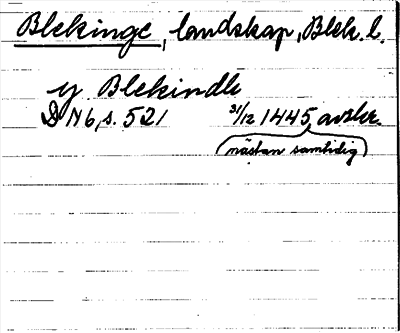 Blekinge, landskap, Blek. l.
y Blekindh
DN 6, s. 521 31/12 1445 avskr.
(nästan samtidig)